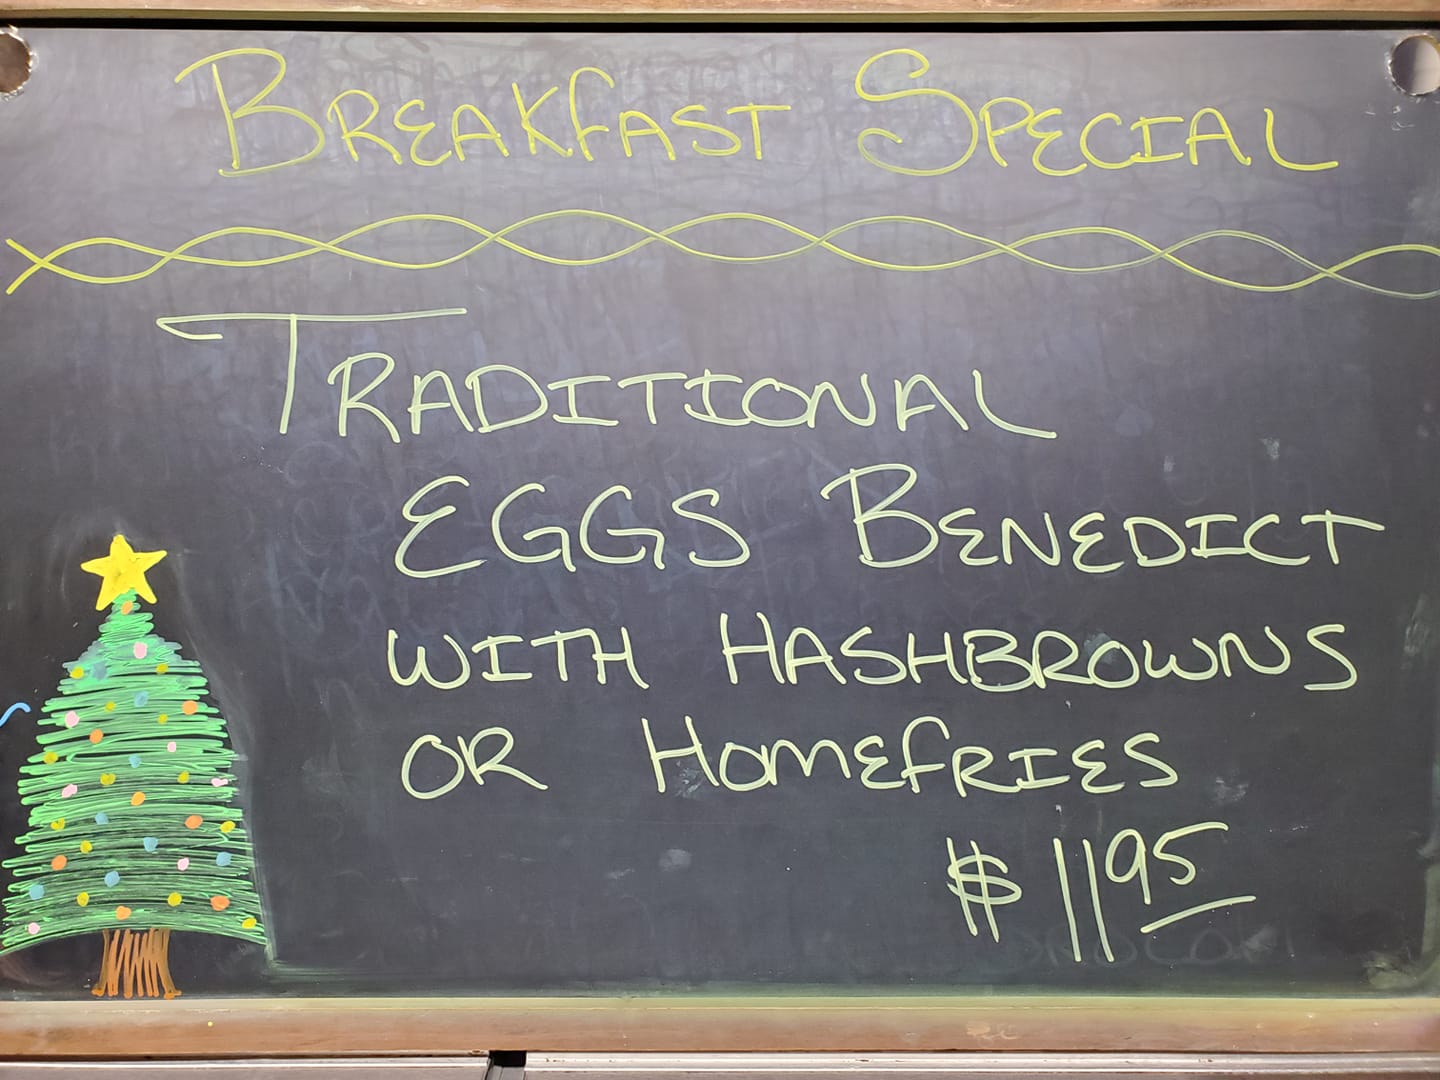 BREAKFAST SPECIAL
TRADITIONAL
EGGS BENEDICT
WITH HASHBROWNS
OR HOMEFRIES
$11.95